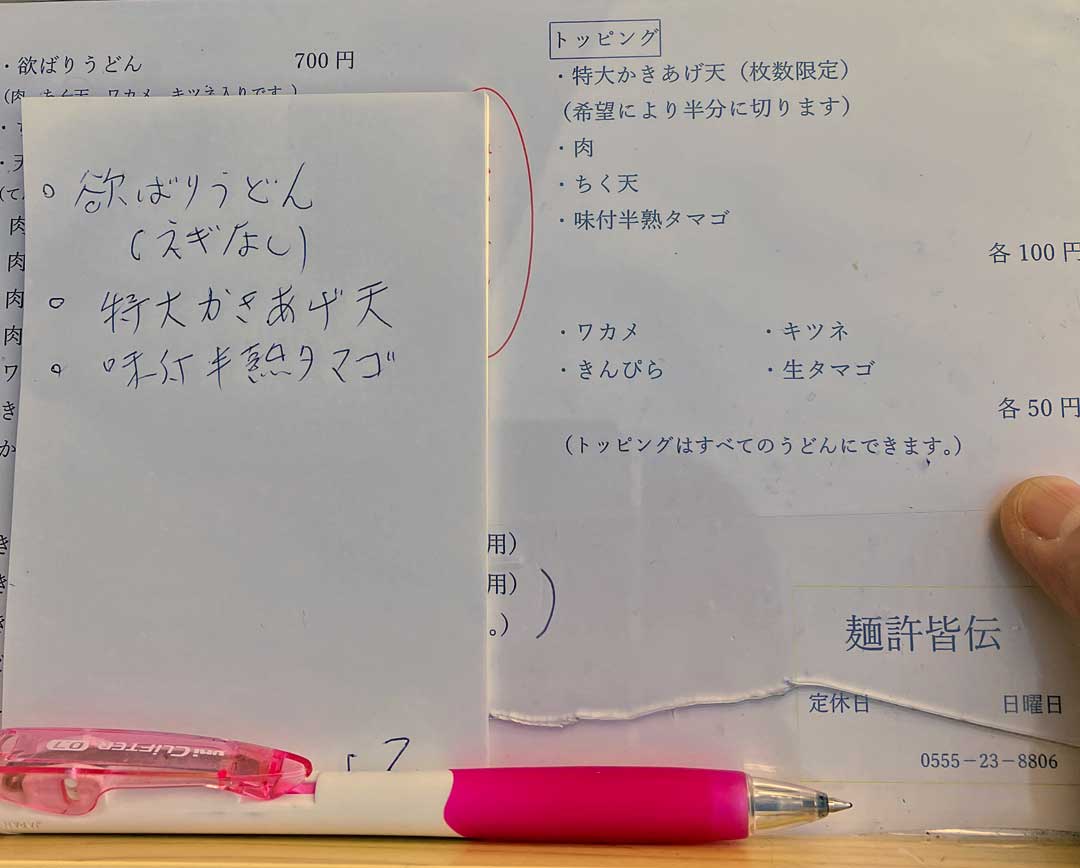 ・欲ばりうどん 700円
(肉 ちく天 ワカメ キツネ入りです。)
・天
肉
肉
肉
肉
ワ
き
か
用)
用)
。)
。欲ばりうどん
(ネギなし)
。特大かきあげ天
。味付半熟タマゴ
トッピング
・特大かきあげ天（枚数限定）
（希望により半分に切ります）
・肉
・ちく天
・味付半熟タマゴ
各100円
・ワカメ ・キツネ
・きんぴら ・生タマゴ
各50円
（トッピングはすべてのうどんにできます。）
麺許皆伝
定休日 日曜日
0555－23－8806
uni CLiFTER 0.7
JAPAN